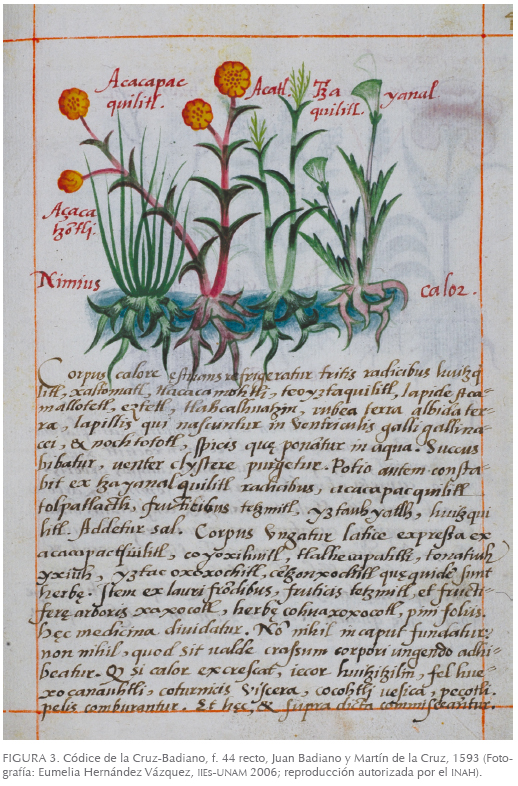 Acacapac
quilitl.
Acatl.
Tza
quilitl.
yanal
Açaca
Nimius
calor.
Corpus calore estuans refrigeratur tritis radicibus huitzq
litl, xaltomatl, tlacacamohtli, teoyztaquilitl, lapide
eztetl, tlahcalhuatzin, rubea terra albida ter-
ræ, lapillis qui nascuntur in ventriculis galli gallina-
cei, & nochtototl, spicis quę ponātur in aqua. Succus
bibatur, venter clystere purgetur. Potio autem consta-
bit ex tzayanalquilitl radicibus, acacapacquilitl
tolpatlactli, fruticibus tetzmitl. huitzqui
litl. Addetur sal. Corpus Vngatur latice expressa ex
coyoxihuitl, tonatiuh
yxiuh, yztac oxoxochitl, quę quidē sunt
herbę. Item ex lauri frōdibus, fruticis tetzmitl, et fructi-
ferę arboris xaxocotl, herbę cohuaxoxocotl, pini foliis.
hęc medicina diuidatur. Nō nihil in caput fundatur,
non nihil, quod sit valde crassum corpori ungendo adhi-
beatur. Q si calor excrescat, iecor huitzitzilin, fel hue-
xocanauhtli, coturnicis viscera, cocohtli vesica, peçotli.
pelis comburantur. Et hęc, & supra dicta commisceantur.
FIGURA 3. Códice de la Cruz-Badiano, f. 44 recto, Juan Badiano y Martín de la Cruz, 1593 (Foto-
grafía: Eumelia Hernández Vázquez, IIEs-UNAM 2006; reproducción autorizada por el INAH).